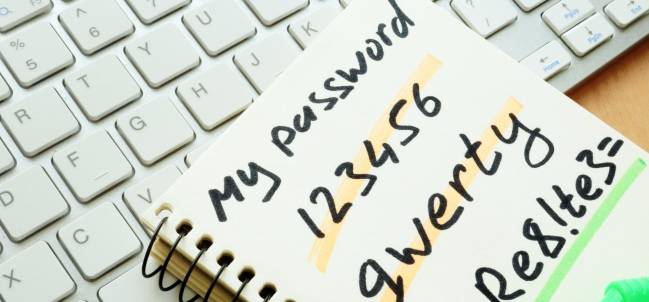 My password
123456
qwerty
Re8!te3=
%
5
^
6
R
T
Y
U
D
F
G
H
X
C
V
PgUp
PgDn
Home